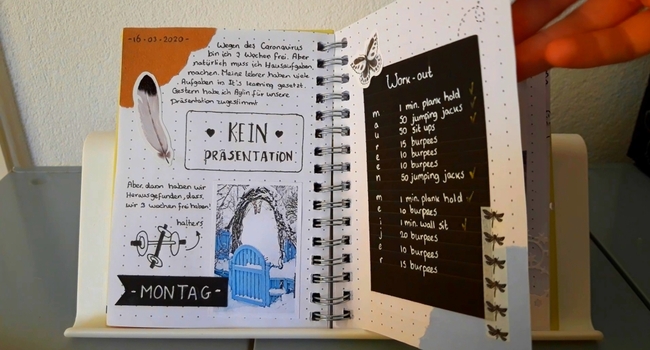 -16-03-2020-
Wegen des Caronavirus
bin ich 3 Woche frei. Aber
natürlich muss ich Hausaufgaben
machen. Meine lehrer haben viele
Aufgaben in It's learning gesetzt.
Gestern habe ich Aylin für unsere
Präsentation zugestimmt
KEIN
PRÄSENTATION
Aber dann haben wir
Herausgefunden, dass
wir 3 wochen frei haben!
halters
-MONTAG-
Work-out
m 1 min. plank hold
a 50 jumping jacks
u 50 sit ups
r 15 burpees
e 10 burpees
e 10 burpees
n 50 jumping jacks
m 1 min. plank hold
e 10 burpees
i 1 min. wall sit
j 20 burpees
e 10 burpees
r 15 burpees